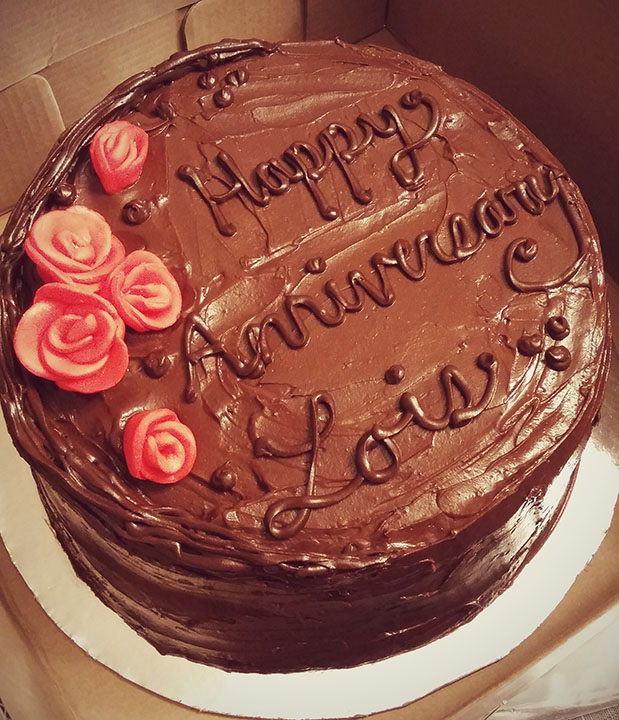 Happy
Anniversary
Lois